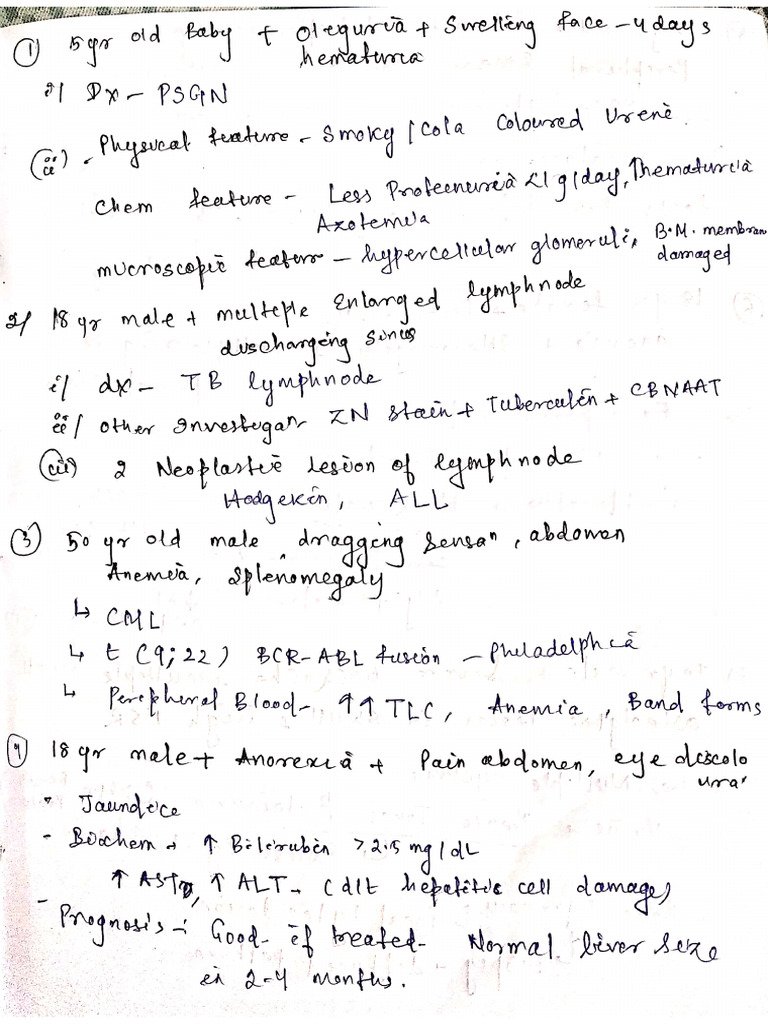 ① 5 yr old Baby + Oleguria + Swelling face - 4 days
hematuria
i/ Dx - PSGN
(ii) - Physical feature - Smoky / Cola Coloured Urene
Chem feature - Less Proteenuria <1 g/day, Thematuria
Axotemia
mucroscopic feature - hypercellular glomeruli, B.M. membran
damaged
2/ 18 yr male + multeple Enlarged lymphnode
duschargeng Sinus
i/ dx - TB lymphnode
ii/ other Investigan ZN Stain + Tuberculin + CBNAAT
(iii) 2 Neoplastic Lesion of lymphnode
Hodgekin, ALL
③ 50 yr old male, dragging Sensan, abdomen
Anemia, Splenomegaly
↳ CML
↳ t (9;22) BCR-ABL fusion - Pheladelphia
↳ Peripheral Blood - ↑↑ TLC, Anemia, Band forms
④ 18 yr male + Anorexia + Pain abdomen, eye descolo
ura'
- Jaundice
- Biochem → ↑ Bilirubin > 2.5 mg/dL
↑ AST, ↑ ALT - (d/t hepatitic cell damage)
- Prognosis :- Good - if treated - Normal liver size
in 2-4 months.